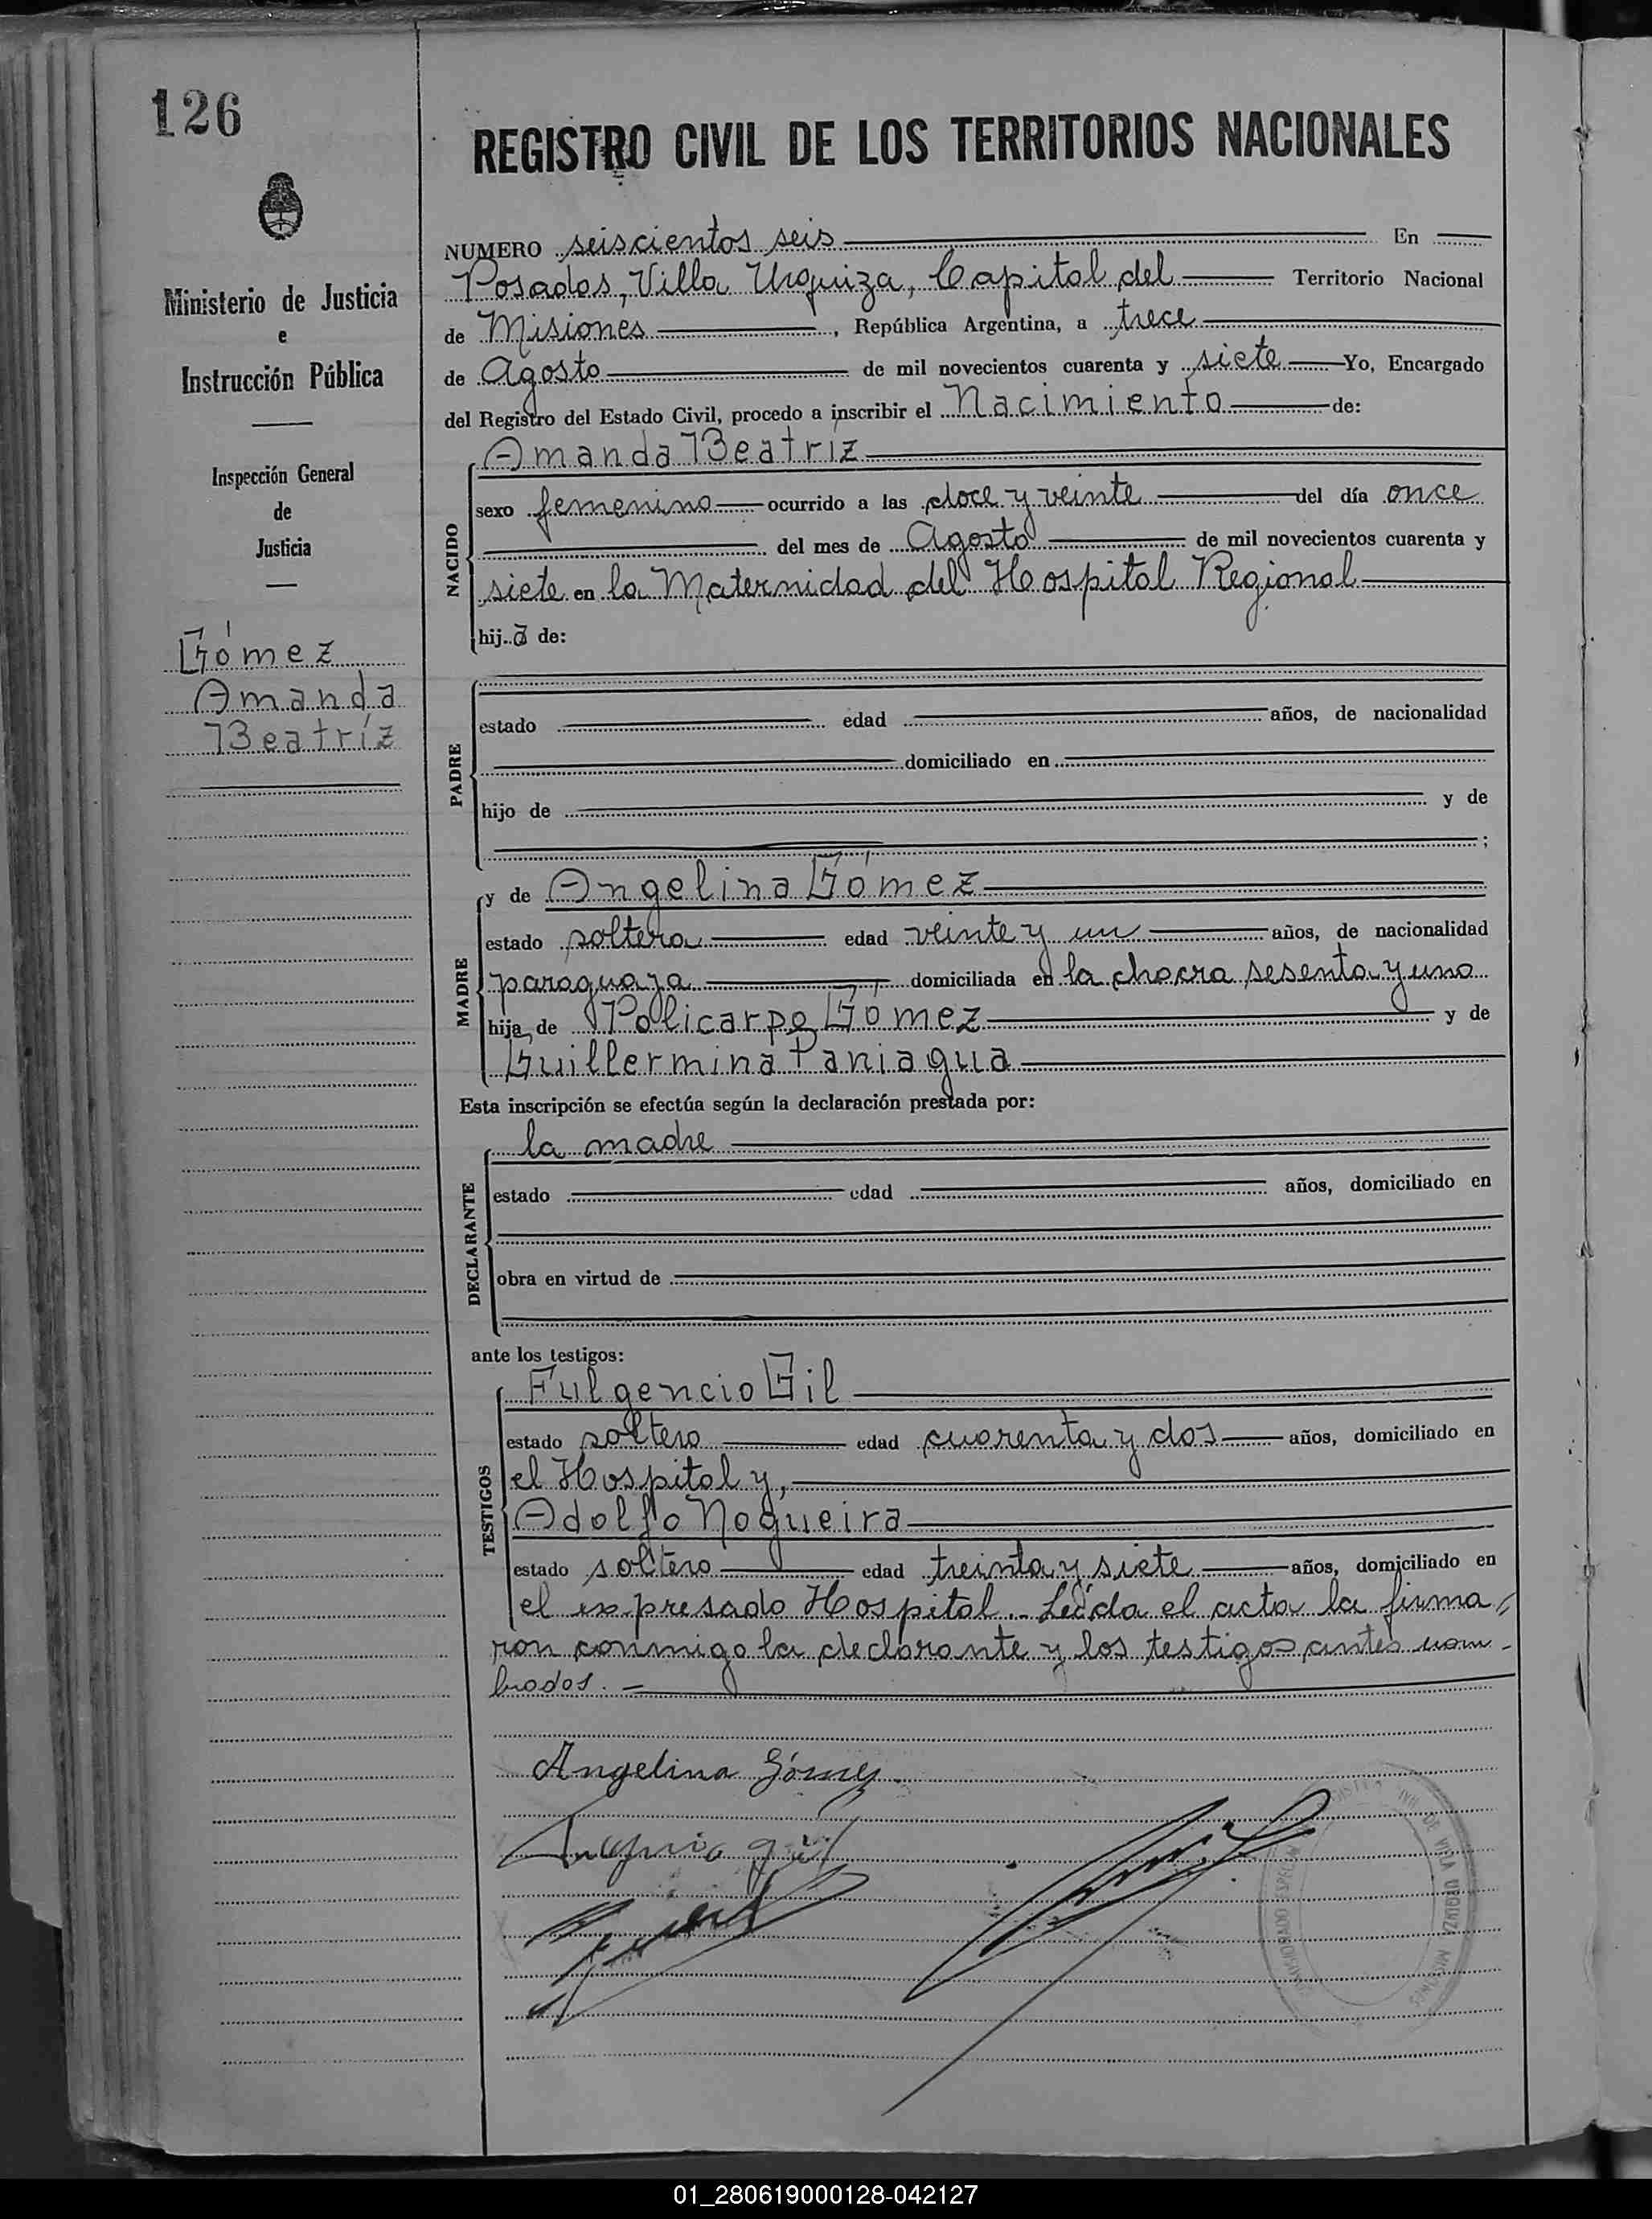 126
REGISTRO CIVIL DE LOS TERRITORIOS NACIONALES
Ministerio de Justicia
e
Instrucción Pública
Inspección General
de
Justicia
Gómez
Amanda
Beatríz
NUMERO seiscientos seis En
Posadas, Villa Urquiza, Capital del Territorio Nacional
de Misiones, República Argentina, a trece
de Agosto de mil novecientos cuarenta y siete Yo, Encargado
del Registro del Estado Civil, procedo a inscribir el Nacimiento de:
NACIDO
Amanda Beatriz
sexo femenino ocurrido a las doce y veinte del día once
del mes de Agosto de mil novecientos cuarenta y
siete en la Maternidad del Hospital Regional
hija de:
PADRE
estado edad años, de nacionalidad
domiciliado en
hijo de y de
;
MADRE
y de Angelina Gómez
estado soltera edad veinte y un años, de nacionalidad
paraguaya domiciliada en la chacra sesenta y uno
hija de Policarpo Gómez y de
Guillermina Paniagua
Esta inscripción se efectúa según la declaración prestada por:
DECLARANTE
la madre
estado edad años, domiciliado en
obra en virtud de
ante los testigos:
TESTIGOS
Fulgencio Gil
estado soltero edad cuarenta y dos años, domiciliado en
el Hospital y,
Adolfo Nogueira
estado soltero edad treinta y siete años, domiciliado en
el expresado Hospital.- Leída el acta la firma
ron conmigo la declarante y los testigos antes nom-
brados.-
Angelina Gómez
gil
DE VILLA URQUIZA MISIONES
01_280619000128-042127